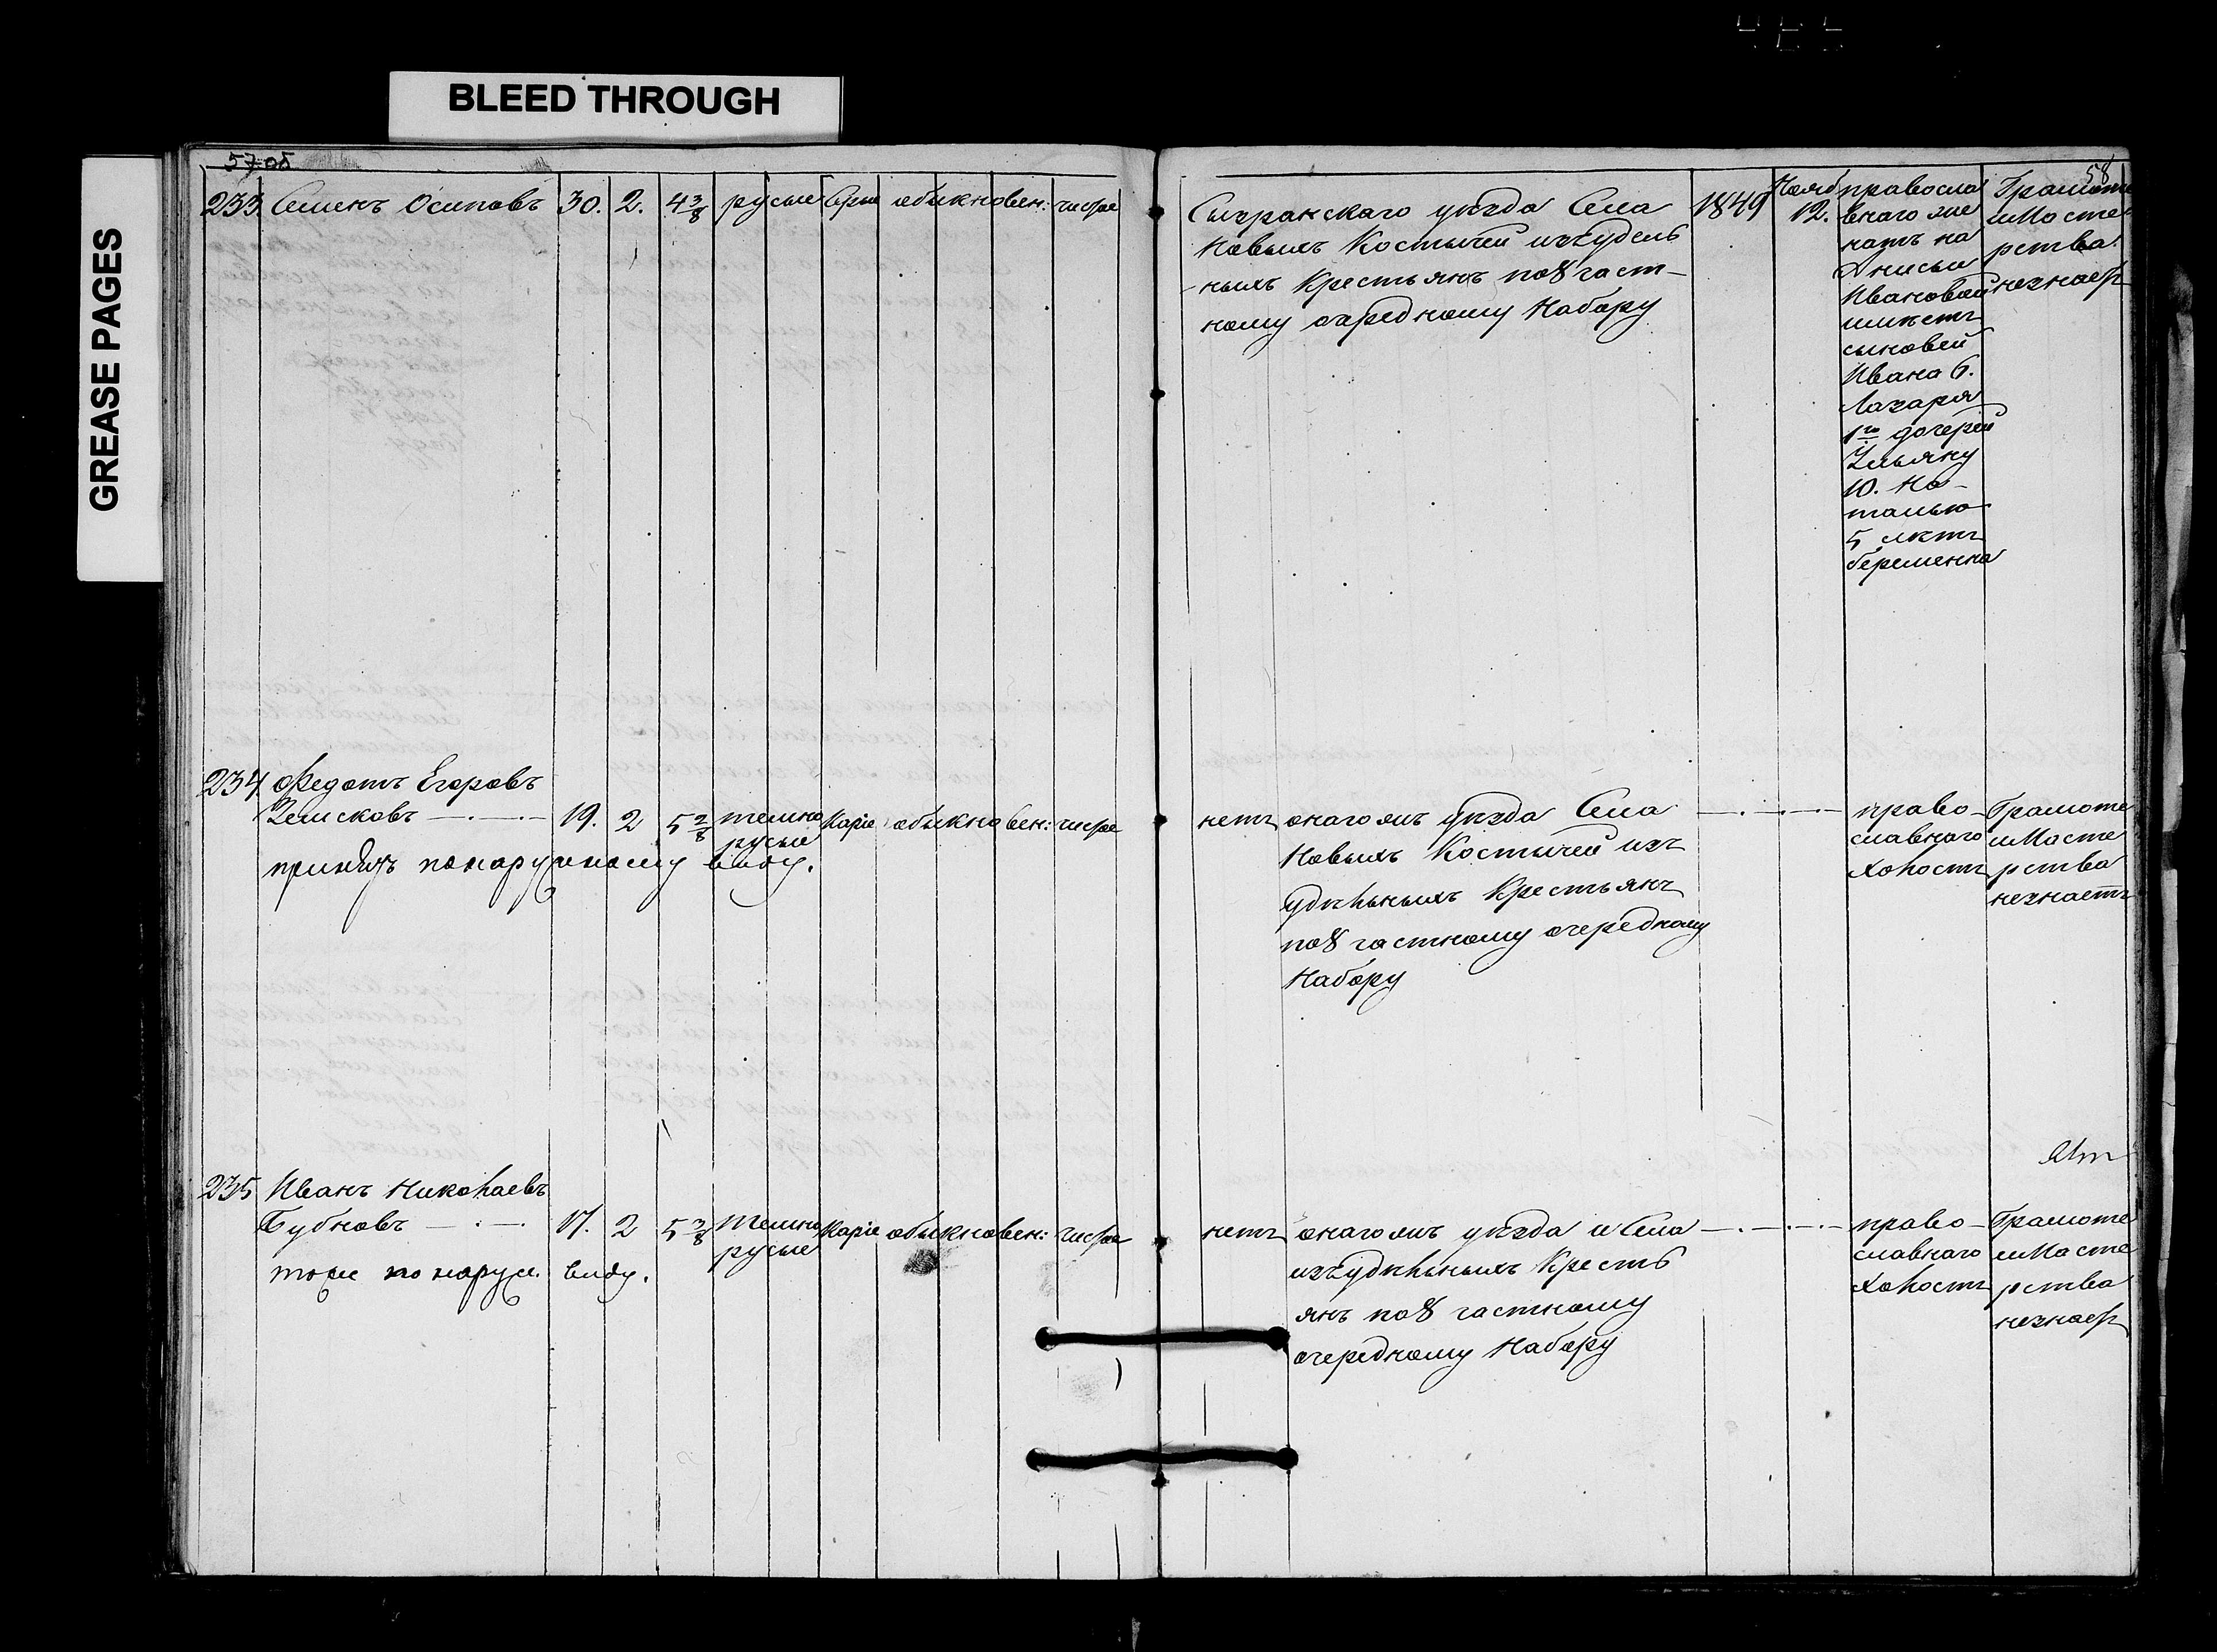 BLEED THROUGH
GREASE PAGES
57 об
58
233. Семенъ Осиповъ 30. 2. 4 3/8 русые Серые обыкновен: чистое
Сызранскаго уѣзда Села
Новыхъ Костычей изъ удель
ныхъ Крестьянъ по 8 част-
ному очередному Набору
1849
Нояб
12.
правосла
внаго же
натъ на
Анисьи
Ивановой
имѣетъ
сыновей
Ивана 6.
Лазаря
1го дочерей
Ульяну
10. На-
талью
5 лѣтъ
беременна
Грамоте
и Масте
рства
незнаетъ
234. Федотъ Егоровъ
Земсковъ — . — . — 19. 2 5 2/8 темно русые Карie обыкновен: чистое
принятъ по наружному виду.
нетъ
онаго жъ уѣзда Села
Новыхъ Костычей изъ
удѣльныхъ Крестьянъ
по 8 частному очередному
Набору
право-
славнаго
холостъ
Грамоте
и Масте
рства
незнаетъ
235 Иванъ Николаевъ
Бубновъ — . — . 17. 2 5 3/8 темно русые Карie обыкновен: чистое
тоже по наруж. виду.
нетъ
онаго жъ уѣзда и Села
изъ удѣльныхъ Кресть
янъ по 8 частному
очередному Набору
право-
славнаго
холостъ
Грамоте
и Масте
рства
незнаетъ